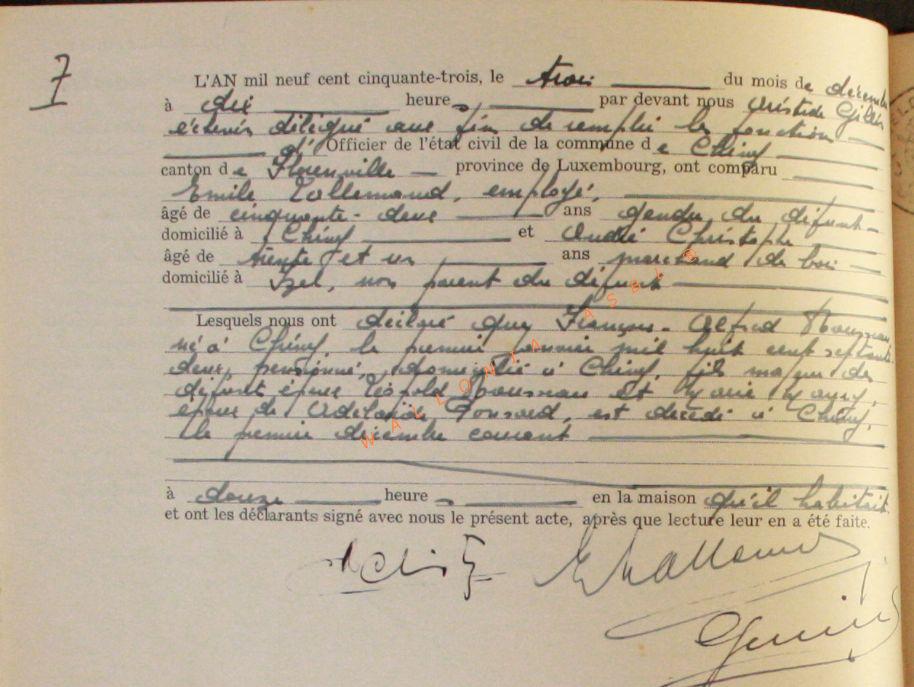 7
L'AN mil neuf cent cinquante-trois, le trois du mois de décembre
à dix heures par devant nous Aristide
échevin délégué aux fin de remplir la fonction
d' Officier de l'état civil de la commune de Chiny
canton de Florenville province de Luxembourg, ont comparu
Emile Lallemand, employé,
âgé de cinquante-deux ans gendre du défunt
domicilié à Chiny et André Christophe
âgé de trente et un ans marchand de bois
domicilié à Izel, non parent du défunt
Lesquels nous ont déclaré que François-Alfred
né à Chiny le premier janvier mil huit cent septante
deux, pensionné, domicilié à Chiny, fils majeur des
défunts époux Léopold et Marie
époux de Adélaïde, est décédé à Chiny,
le premier décembre courant
à douze heures en la maison qu'il habitait
et ont les déclarants signé avec nous le présent acte, après que lecture leur en a été faite.
WALLONIA ASBL